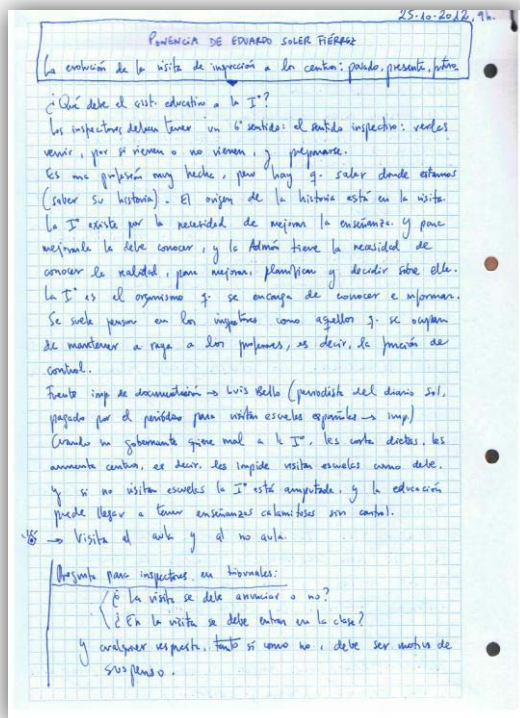 25-10-2012, 9h.
PONENCIA DE EDUARDO SOLER FIÉRREZ
La evolución de la visita de inspección a los centros: pasado, presente, futuro
¿Qué debe el sist. educativo a la Iª?
Los inspectores deben tener un 6º sentido: el sentido inspectivo: verlas
venir, por si vienen o no vienen, y prepararse.
Es una profesión muy hecha, pero hay q. saber donde estamos
(saber su historia). El origen de la historia está en la visita.
La Iª existe por la necesidad de mejorar la enseñanza. Y para
mejorarla la debe conocer, y la Admón tiene la necesidad de
conocer la realidad, para mejorar, planificar y decidir sobre ella.
La Iª es el organismo q. se encarga de conocer e informar.
Se suele pensar en los inspectores como aquellos q. se ocupan
de mantener a raya a los profesores, es decir, la función de
control.
Fuente imp de documentación → Luis Bello (periodista del diario Sol,
pagado por el periódico para visitar escuelas españolas → imp)
Cuando un gobernante quiere mal a la Iª, les corta dietas, les
aumenta centros, es decir, les impide visitar escuelas como debe.
Y si no visitan escuelas la Iª está amputada, y la educación
puede llegar a tener enseñanzas calamitosas sin control.
→ Visita al aula y al no aula.
Pregunta para inspectores en tribunales:
¿La visita se debe anunciar o no?
¿En la visita se debe entrar en la clase?
Y cualquier respuesta, tanto sí como no, debe ser motivo de
suspenso.